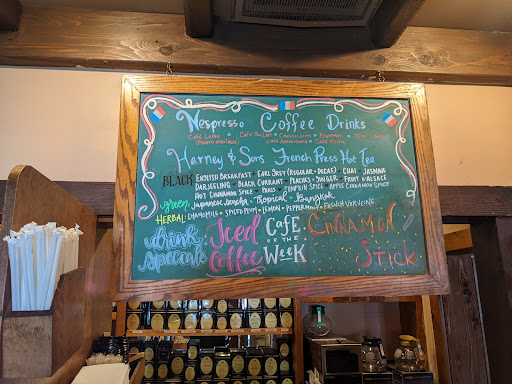 Nespresso Coffee Drinks
Café Latte • Café Au Lait • Cappuccino • Espresso •
Café Americano • Café Mocha
Harney & Sons French Press Hot Tea
BLACK: ENGLISH BREAKFAST • EARL GREY (REGULAR & DECAF) • CHAI • JASMINE
DARJEELING • BLACK CURRANT • PEACHES & GINGER • FRUIT D'ALSACE
HOT CINNAMON SPICE • PARIS • PUMPKIN SPICE • APPLE CINNAMON SPICE
green: Japanese Sencha • Tropical • Bangkok
HERBAL: CHAMOMILE • SPICED PLUM • LEMON • PEPPERMINT • FRENCH VERVEINE
drink specials
Iced Coffee
CAFÉ OF THE WEEK
CINNAMON STICK